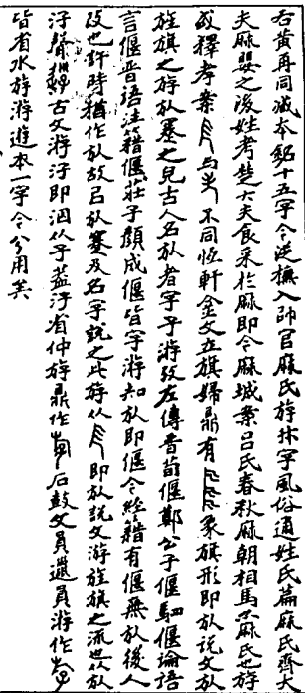 右黃再同減本銘十五字今從橅入帥官麻氏斿牀字風俗通姓氏篇麻氏齊大
夫麻嬰之後姓考楚大夫食采於麻即今麻城案呂氏春秋麻朝相馬亦麻氏也斿
㫃釋孝案與不同恆軒金文立旗婦鼎有象旗形即㫃說文㫃
旌旗之游㫃蹇之皃古人名㫃者字子游攷左傳晉荀偃鄭公子偃駟偃論語
言偃晉語注籍偃莊子顏成偃皆字游知㫃即偃今經籍有偃無㫃後人
改也許時猶作㫃故呂㫃蹇及名字說之此斿从即㫃說文游旌旗之流也从㫃
汓聲古文游汓即泅从子葢汓省仲斿鼎作石鼓文員邋員游作
皆省水斿游遊本一字今分用矣